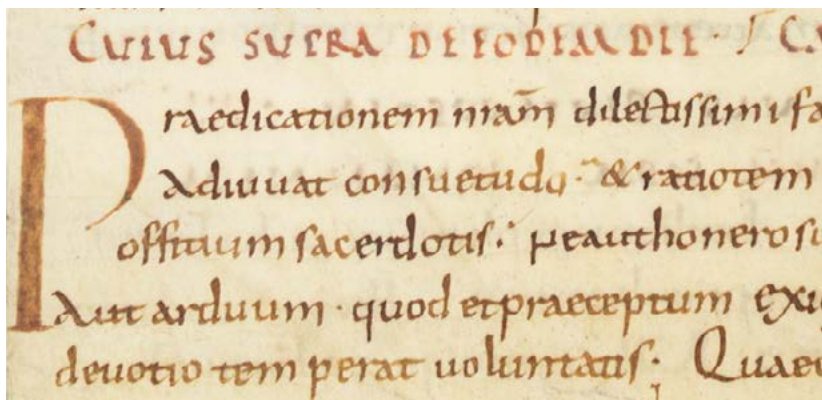 CUIUS SUPRA DE EODEM DIE
Praedicationem nram̄ dilectissimi
Adiuuat consuetudo. & ratio tem
offitium sacerdotis.
Aut arduum. quod et praeceptum
deuotio temperat uoluntatis.